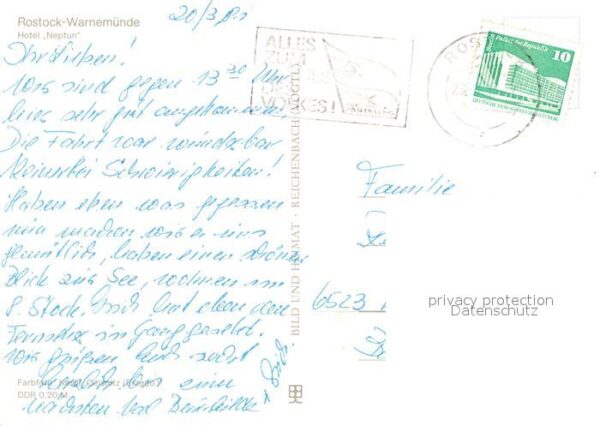 Rostock-Warnemünde
Hotel „Neptun"
20/3
Ihr Lieben!
Wir sind gegen 13³⁰ Uhr
hier sehr gut angekommen.
Die Fahrt war wunderbar
keinerlei Schwierigkeiten!
Haben eben was gegessen
nun machen wir es uns
gemütlich, haben einen schönen
Blick zur See, wohnen im
8. Stock. hat eben den
Fernseher in Gang gesetzt.
Wir grüßen Euch
herzlich bis zum
nächsten Mal
Farbfoto:
DDR 0,20 M
BILD UND HEIMAT · REICHENBACH (VOGTL)
ALLES
ZUM
WOHLE
DES
VOLKES!
ROS
Berlin, Palast der Republik
10
DEUTSCHE DEMOKRATISCHE REPUBLIK
Familie
6523
privacy protection
Datenschutz